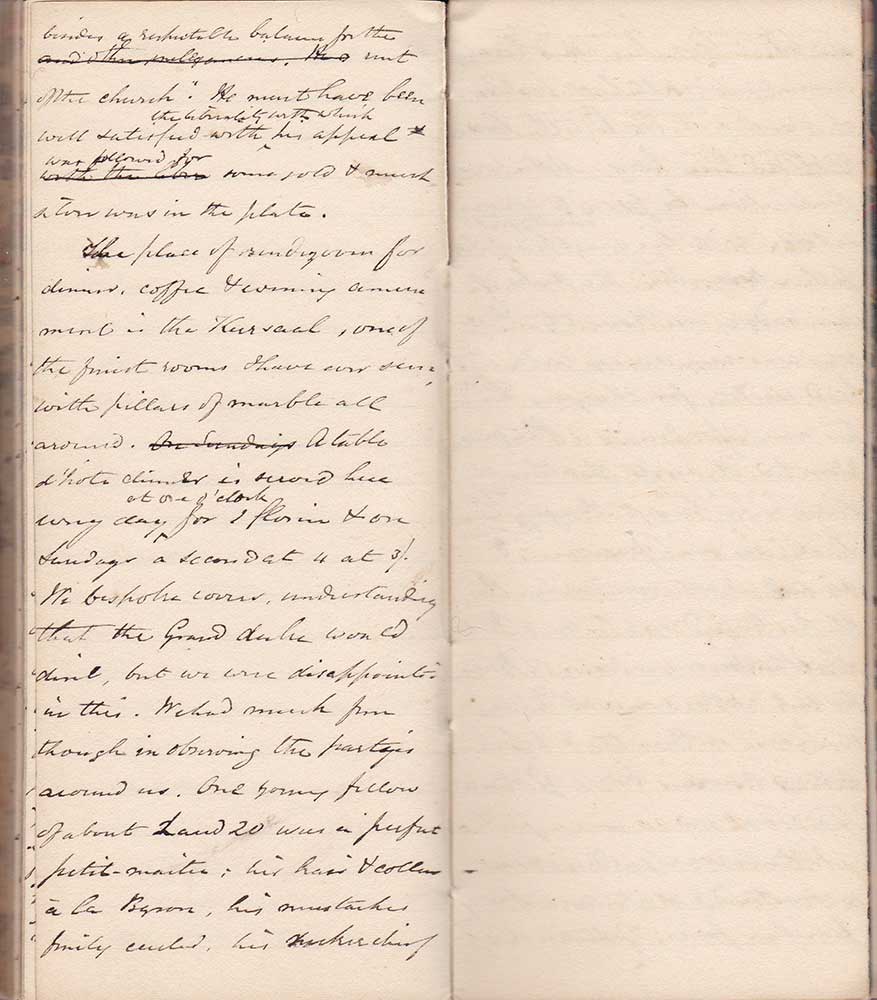 besides a respectable balance for the
and other indulgences. He rent
of the church". He must have been
the liberality with which
well satisfied with his appeal
was followed for
with the some gold & much
silver was in the plate.
The place of rendezvous for
dinner, coffee & evening amuse
ment is the Kursaal, one of
the finest rooms I have ever seen,
with pillars of marble all
around. On Sundays A table
d'hote dinner is served here
at one o'clock
every day for 1 florin & on
Sundays a second at 4 at 3/.
We bespoke covers, understanding
that the Grand duke would
dine, but we were disappointed
in this. We had much fun
though in observing the partys
around us. One young fellow
of about 1 and 20 was a perfect
petit-maitre; his hair & collar
à la Byron, his mustaches
finely curled, his neckerchief